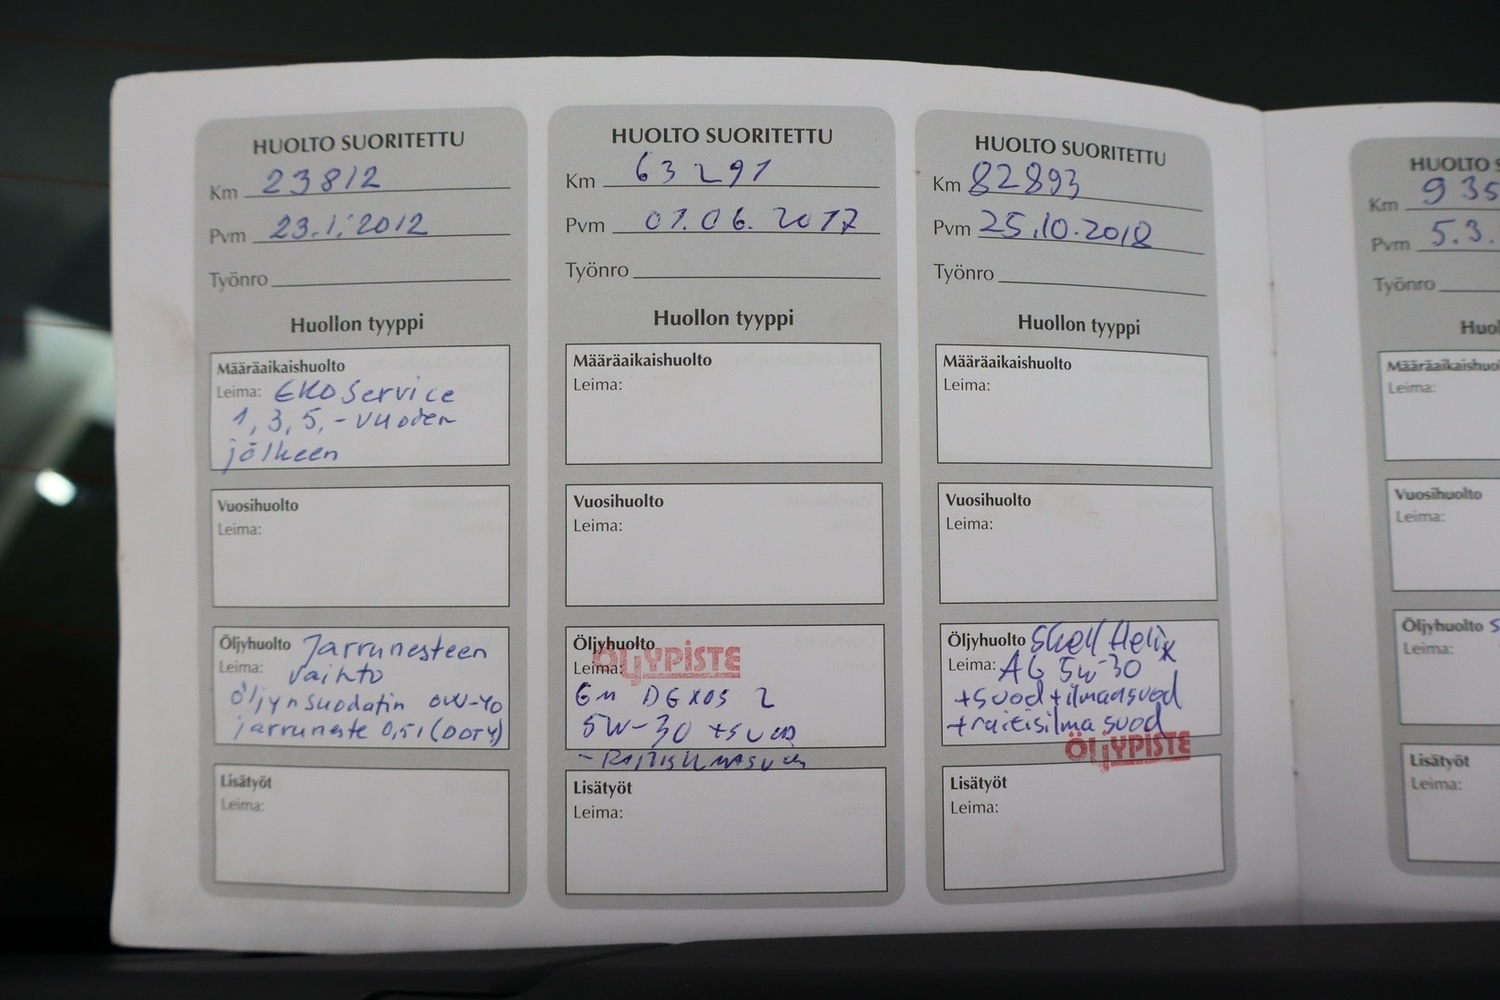 HUOLTO SUORITETTU
Km 23812
Pvm 23.1.2012
Työnro
Huollon tyyppi
Määräaikaishuolto
Leima: EKO Service
1, 3, 5, - vuoden
jälkeen
Vuosihuolto
Leima:
Öljyhuolto Jarrunesteen
Leima: vaihto
öljynsuodatin 0W-40
jarruneste 0,5l (DOT4)
Lisätyöt
Leima:
HUOLTO SUORITETTU
Km 63291
Pvm 01.06.2017
Työnro
Huollon tyyppi
Määräaikaishuolto
Leima:
Vuosihuolto
Leima:
Öljyhuolto
ÖLJYPISTE
Leima:
GM DEXOS 2
5W-30 + SUOD
- RAITISILMASUOD
Lisätyöt
Leima:
HUOLTO SUORITETTU
Km 82893
Pvm 25.10.2018
Työnro
Huollon tyyppi
Määräaikaishuolto
Leima:
Vuosihuolto
Leima:
Öljyhuolto Shell Helix
Leima: AG 5W-30
+suod+ilmansuod
+raitisilmasuod
ÖLJYPISTE
Lisätyöt
Leima:
HUOLTO S
Km 935
Pvm 5.3.
Työnro
Huol
Määräaikaishuo
Leima:
Vuosihuolto
Leima:
Öljyhuolto S
Leima:
Lisätyöt
Leima: